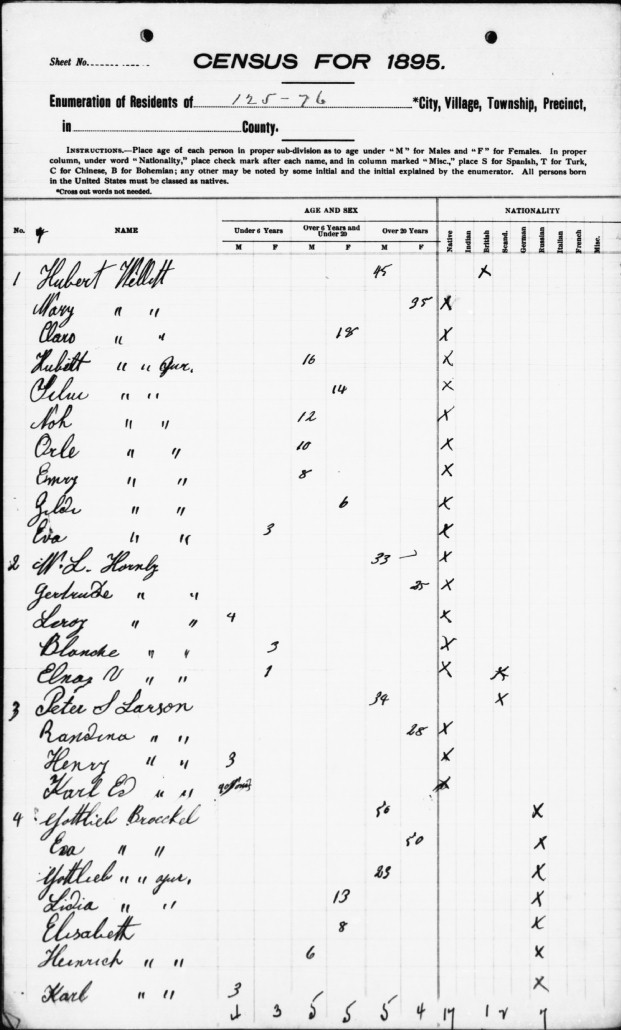 Sheet No.
CENSUS FOR 1895.
Enumeration of Residents of 125-76 *City, Village, Township, Precinct,
in County.
INSTRUCTIONS.—Place age of each person in proper sub-division as to age under "M" for Males and "F" for Females. In proper
column, under word "Nationality," place check mark after each name, and in column marked "Misc.," place S for Spanish, T for Turk,
C for Chinese, B for Bohemian; any other may be noted by some initial and the initial explained by the enumerator. All persons born
in the United States must be classed as natives.
*Cross out words not needed.
AGE AND SEX NATIONALITY
No. NAME Under 6 Years Over 6 Years and Under 20 Over 20 Years Native Indian British Scand. German Russian Italian French Misc.
M F M F M F
1 Hubert Willett 45 X
Mary " " 35 X
Claro " " 18 X
Hubett " " Jur. 16 X
" " 14 X
Noh " " 12 X
Orle " " 10 X
Emry " " 8 X
Gilda " " 6 X
Eva " " 3 X
2 W. L. Hornby 33 X
Gertrude " " 25 X
Leroy " " 4 X
Blanche " " 3 X
Elnaz V " " 1 X X
3 Peter S Larson 34 X
Randina " " 28 X
Henry " " 3 X
Karl Ed " " X
4 Gottlieb Broeckel 50 X
Eva " " 50 X
Gottlieb " " Jur. 23 X
Lidia " " 13 X
Elisabeth 8 X
Heinrich " " 6 X
Karl " " 3 X
3 5 5 5 4 17 1 2 7